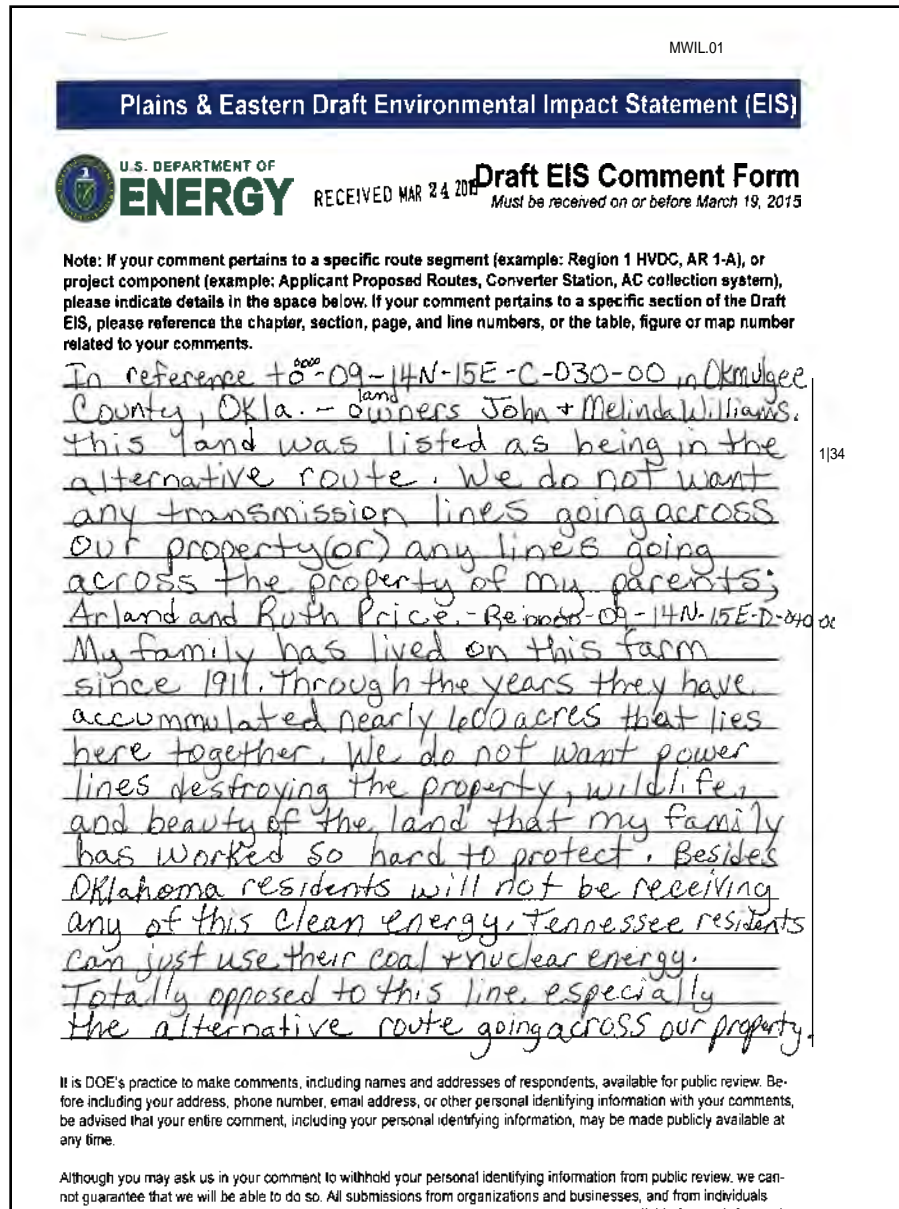 MWIL.01
Plains & Eastern Draft Environmental Impact Statement (EIS)
U.S. DEPARTMENT OF
ENERGY
RECEIVED MAR 24 2015
Draft EIS Comment Form
Must be received on or before March 19, 2015
Note: If your comment pertains to a specific route segment (example: Region 1 HVDC, AR 1-A), or
project component (example: Applicant Proposed Routes, Converter Station, AC collection system),
please indicate details in the space below. If your comment pertains to a specific section of the Draft
EIS, please reference the chapter, section, page, and line numbers, or the table, figure or map number
related to your comments.
In reference to 0000-09-14N-15E-C-030-00 in Okmulgee
County, Okla. - land owners John + Melinda Williams.
this land was listed as being in the
1|34
alternative route. We do not want
any transmission lines going across
our property (or) any lines going
across the property of my parents;
Arland and Ruth Price. - Re: 0000-09-14N-15E-D-040-00
My family has lived on this farm
since 1911. Through the years they have
accummulated nearly 1000 acres that lies
here together. We do not want power
lines destroying the property, wildlife,
and beauty of the land that my family
has worked so hard to protect. Besides
Oklahoma residents will not be receiving
any of this clean energy. Tennessee residents
can just use their coal + nuclear energy.
Totally opposed to this line, especially
the alternative route going across our property.
It is DOE's practice to make comments, including names and addresses of respondents, available for public review. Be-
fore including your address, phone number, email address, or other personal identifying information with your comments,
be advised that your entire comment, including your personal identifying information, may be made publicly available at
any time.
Although you may ask us in your comment to withhold your personal identifying information from public review, we can-
not guarantee that we will be able to do so. All submissions from organizations and businesses, and from individuals